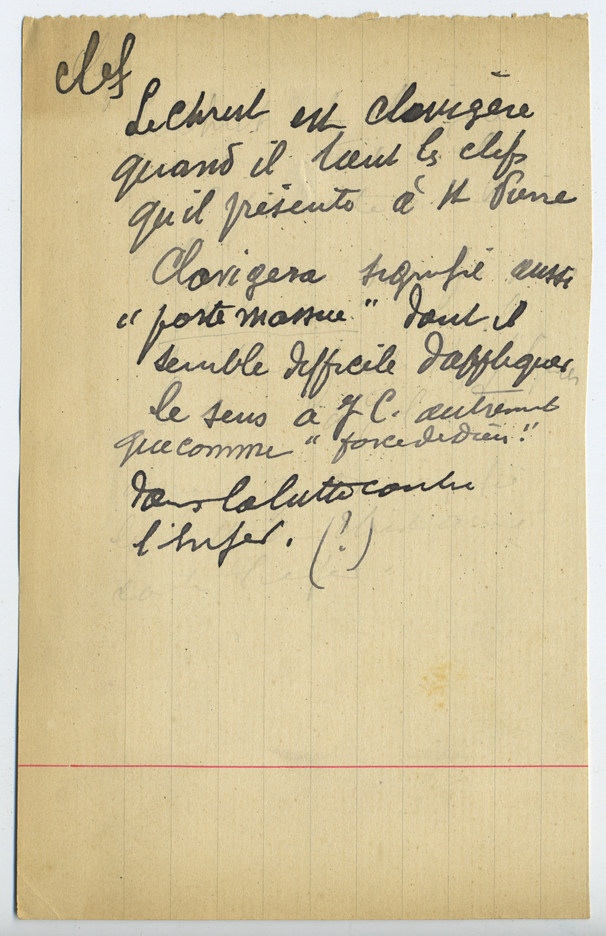 clef
Le Christ est clavigère
quand il tient les clefs
qu'il présente à St Pierre
Clavigera signifie aussi
"porte massue" dont il
semble difficile d'appliquer
le sens a J C. autrement
que comme "force de dieu"
dans la lutte contre
l'Enfer. (?)